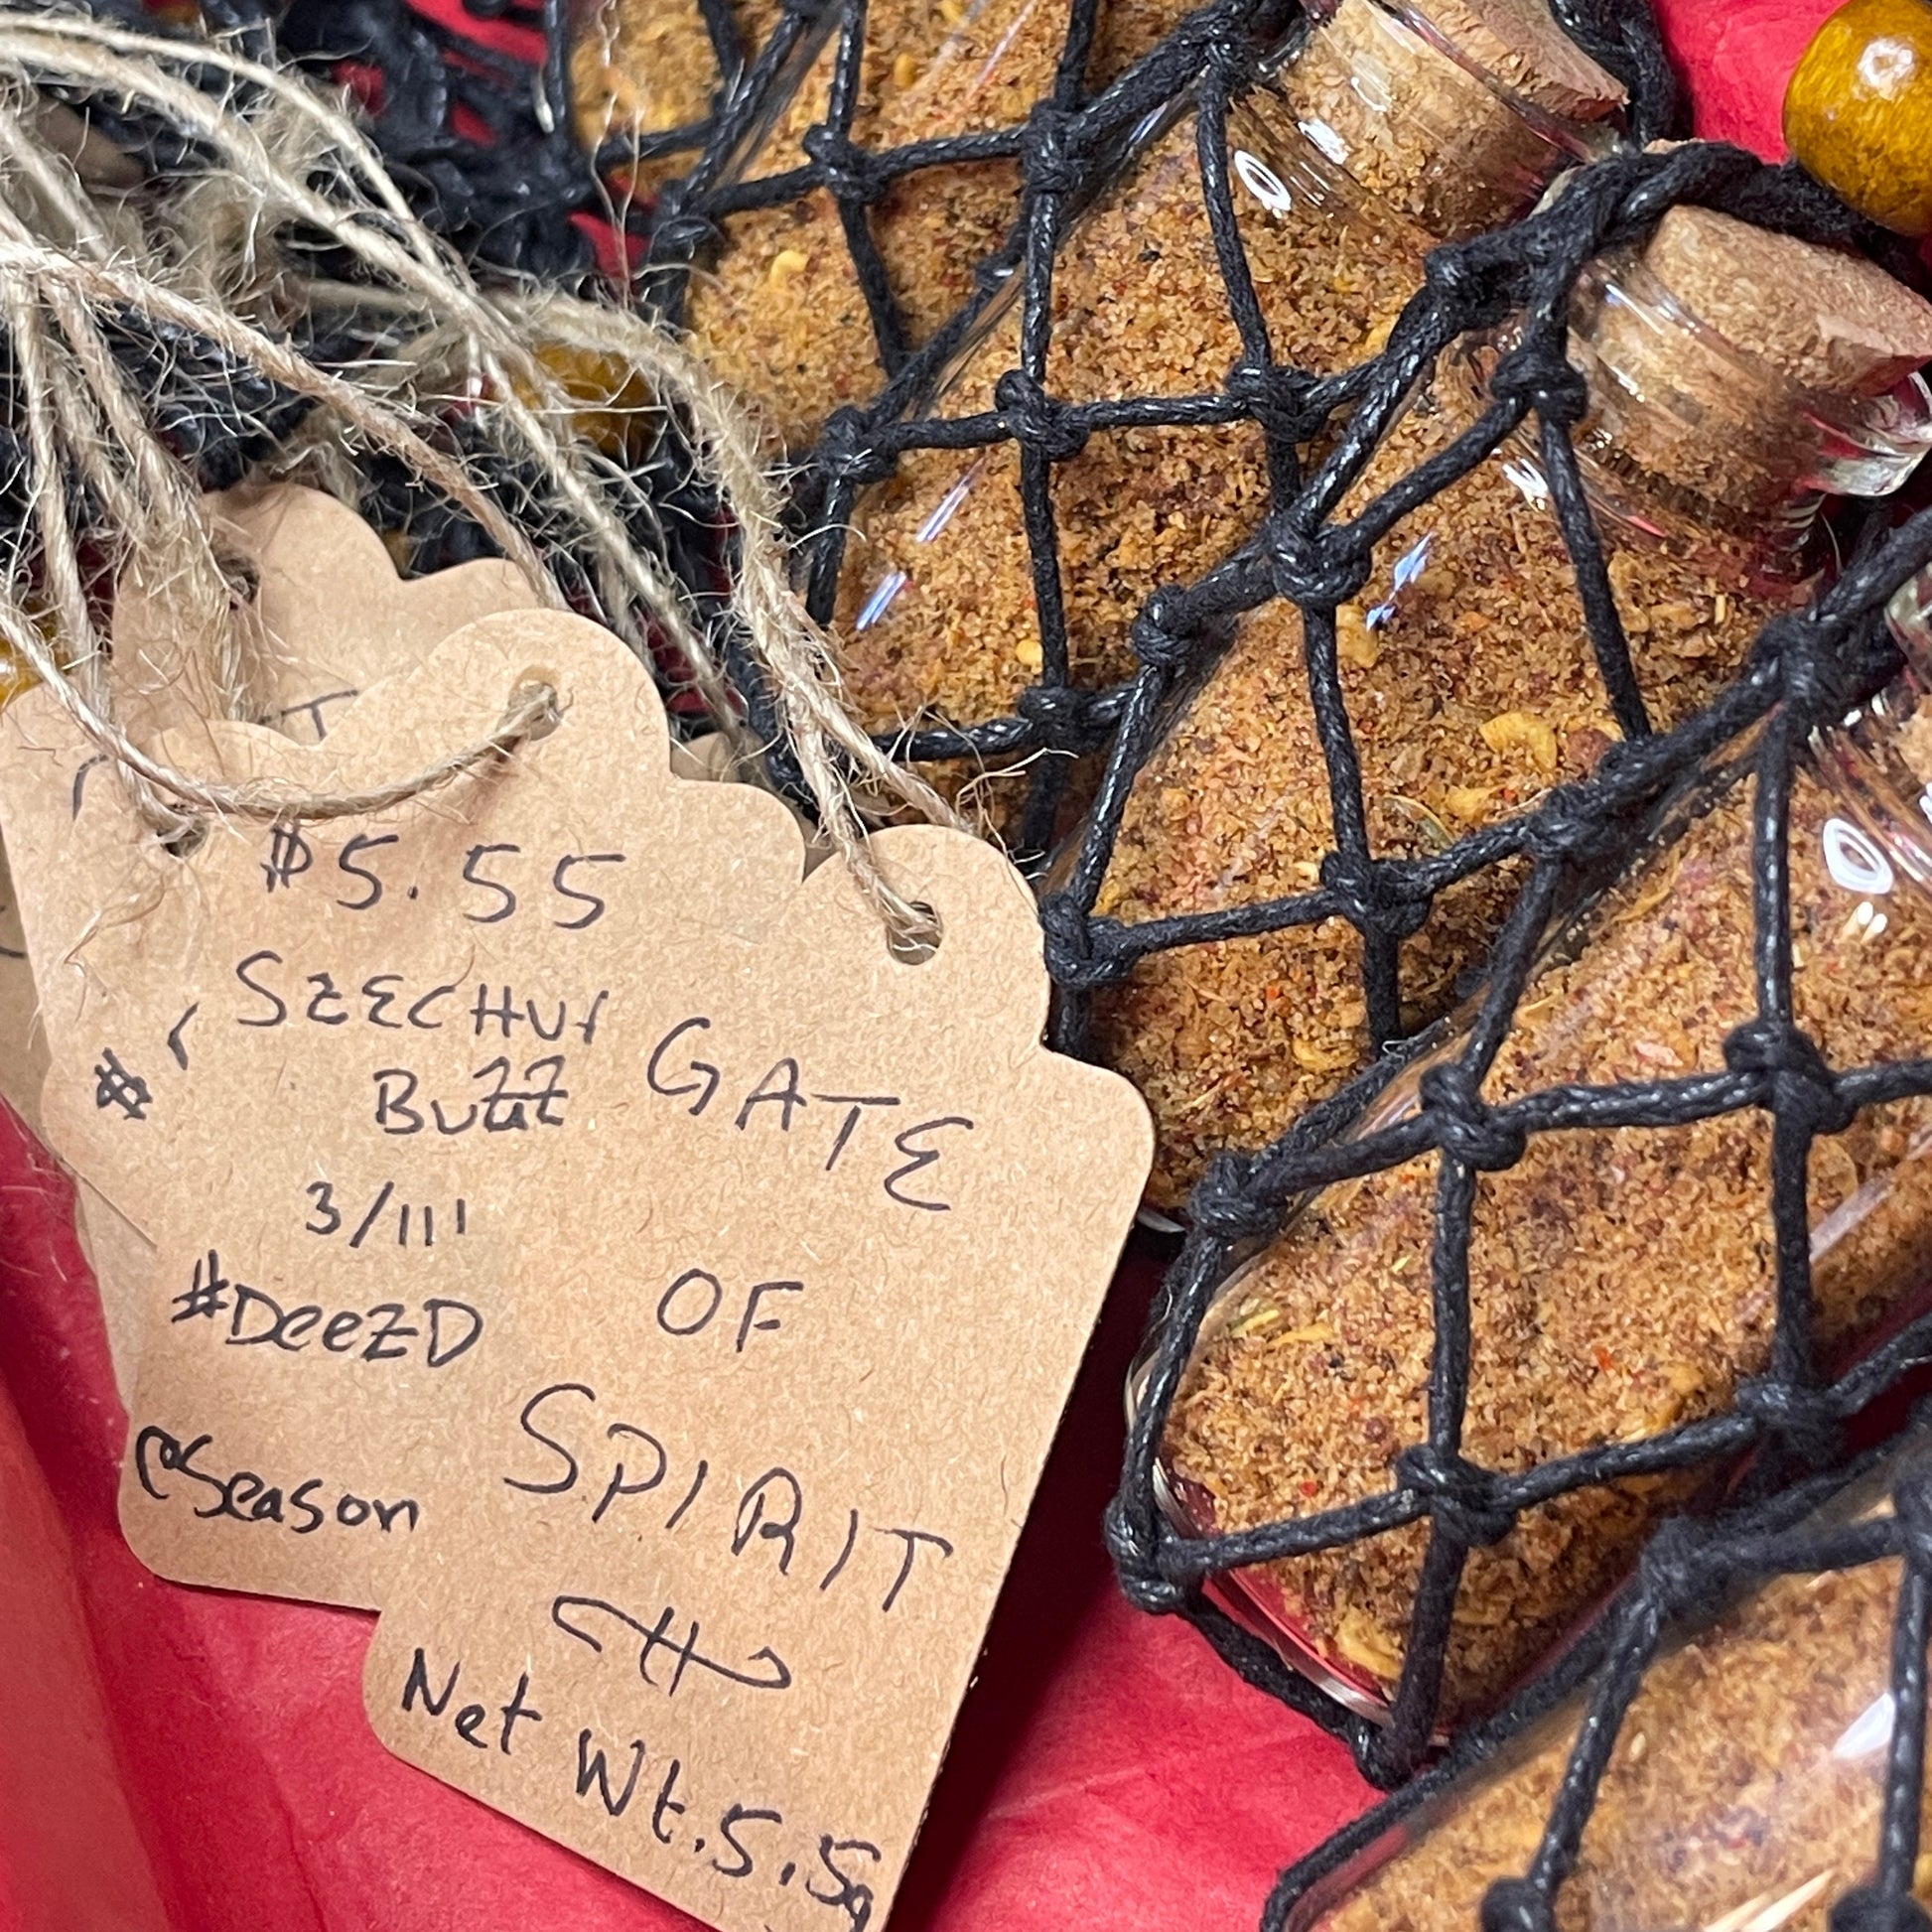 $5.55
SZECHU
BUZZ
3/111
#DeeZD
@Season
GATE
OF
SPIRIT
Net Wt. 5.5g